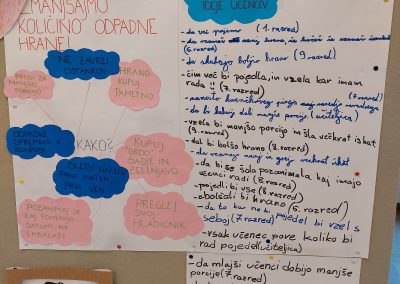 ZMANJŠAJMO
KOLIČINO ODPADNE
HRANE!
NE ZAVRZI
OSTANKOV
PROSI ZA
MANJŠO
PORCIJO
HRANO
KUPUJ
PAMETNO
ODPADKE
SPREMENI V
KOMPOST
KAKO?
SLEDI NAČELU
PRVI NOTER,
PRVI VEN
KUPUJ
"GRDO"
SADJE IN
ZELENJAVO
POZANIMAJ SE
KAJ POMENIJO
DATUMI NA
EMBALAŽI
PREGLEJ
SVOJ
HLADILNIK
IDEJE UČENCEV
- da več pojemo (1. razred)
- da skuhajo boljšo hrano (9. razred)
- čim več bi pojedla, in vzela kar imam
rada (7. razred)
- da bi kuharji dali manjšo porcijo (učiteljica)
- vzela bi manjšo porcijo in šla večkrat iskat
(9. razred)
- dal bi boljšo hrano (8. razred)
- da vzamejo manj in grejo večkrat iskat
- da bi se šola pozanimala kaj imajo
učenci radi (5. razred)
- pojedli bi vse (8. razred)
- izboljšali bi hrano (6. razred)
- da to kar ne bi pojedel bi vzel s
seboj (7. razred)
- vsak učenec pove koliko bi
rad pojedel (učiteljica)
- da mlajši učenci dobijo manjše
porcije (7. razred)